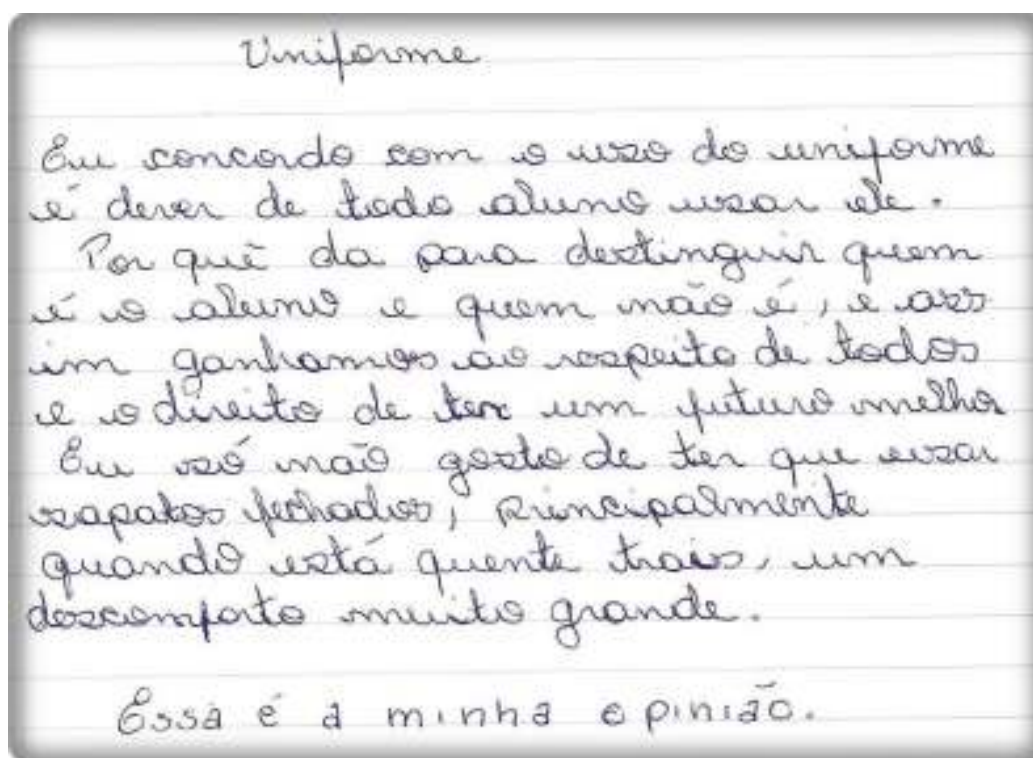 Uniforme
Eu concordo com o uso do uniforme
é dever de todo aluno usar ele.
Por quê da para destinguir quem
é o aluno e quem não é, e ass
im ganhamos ao respeito de todos
e o direito de ter um futuro melhor
Eu só não gosto de ter que usar
sapatos fechados, principalmente
quando está quente trais, um
desconforto muito grande.
Essa é a minha opinião.